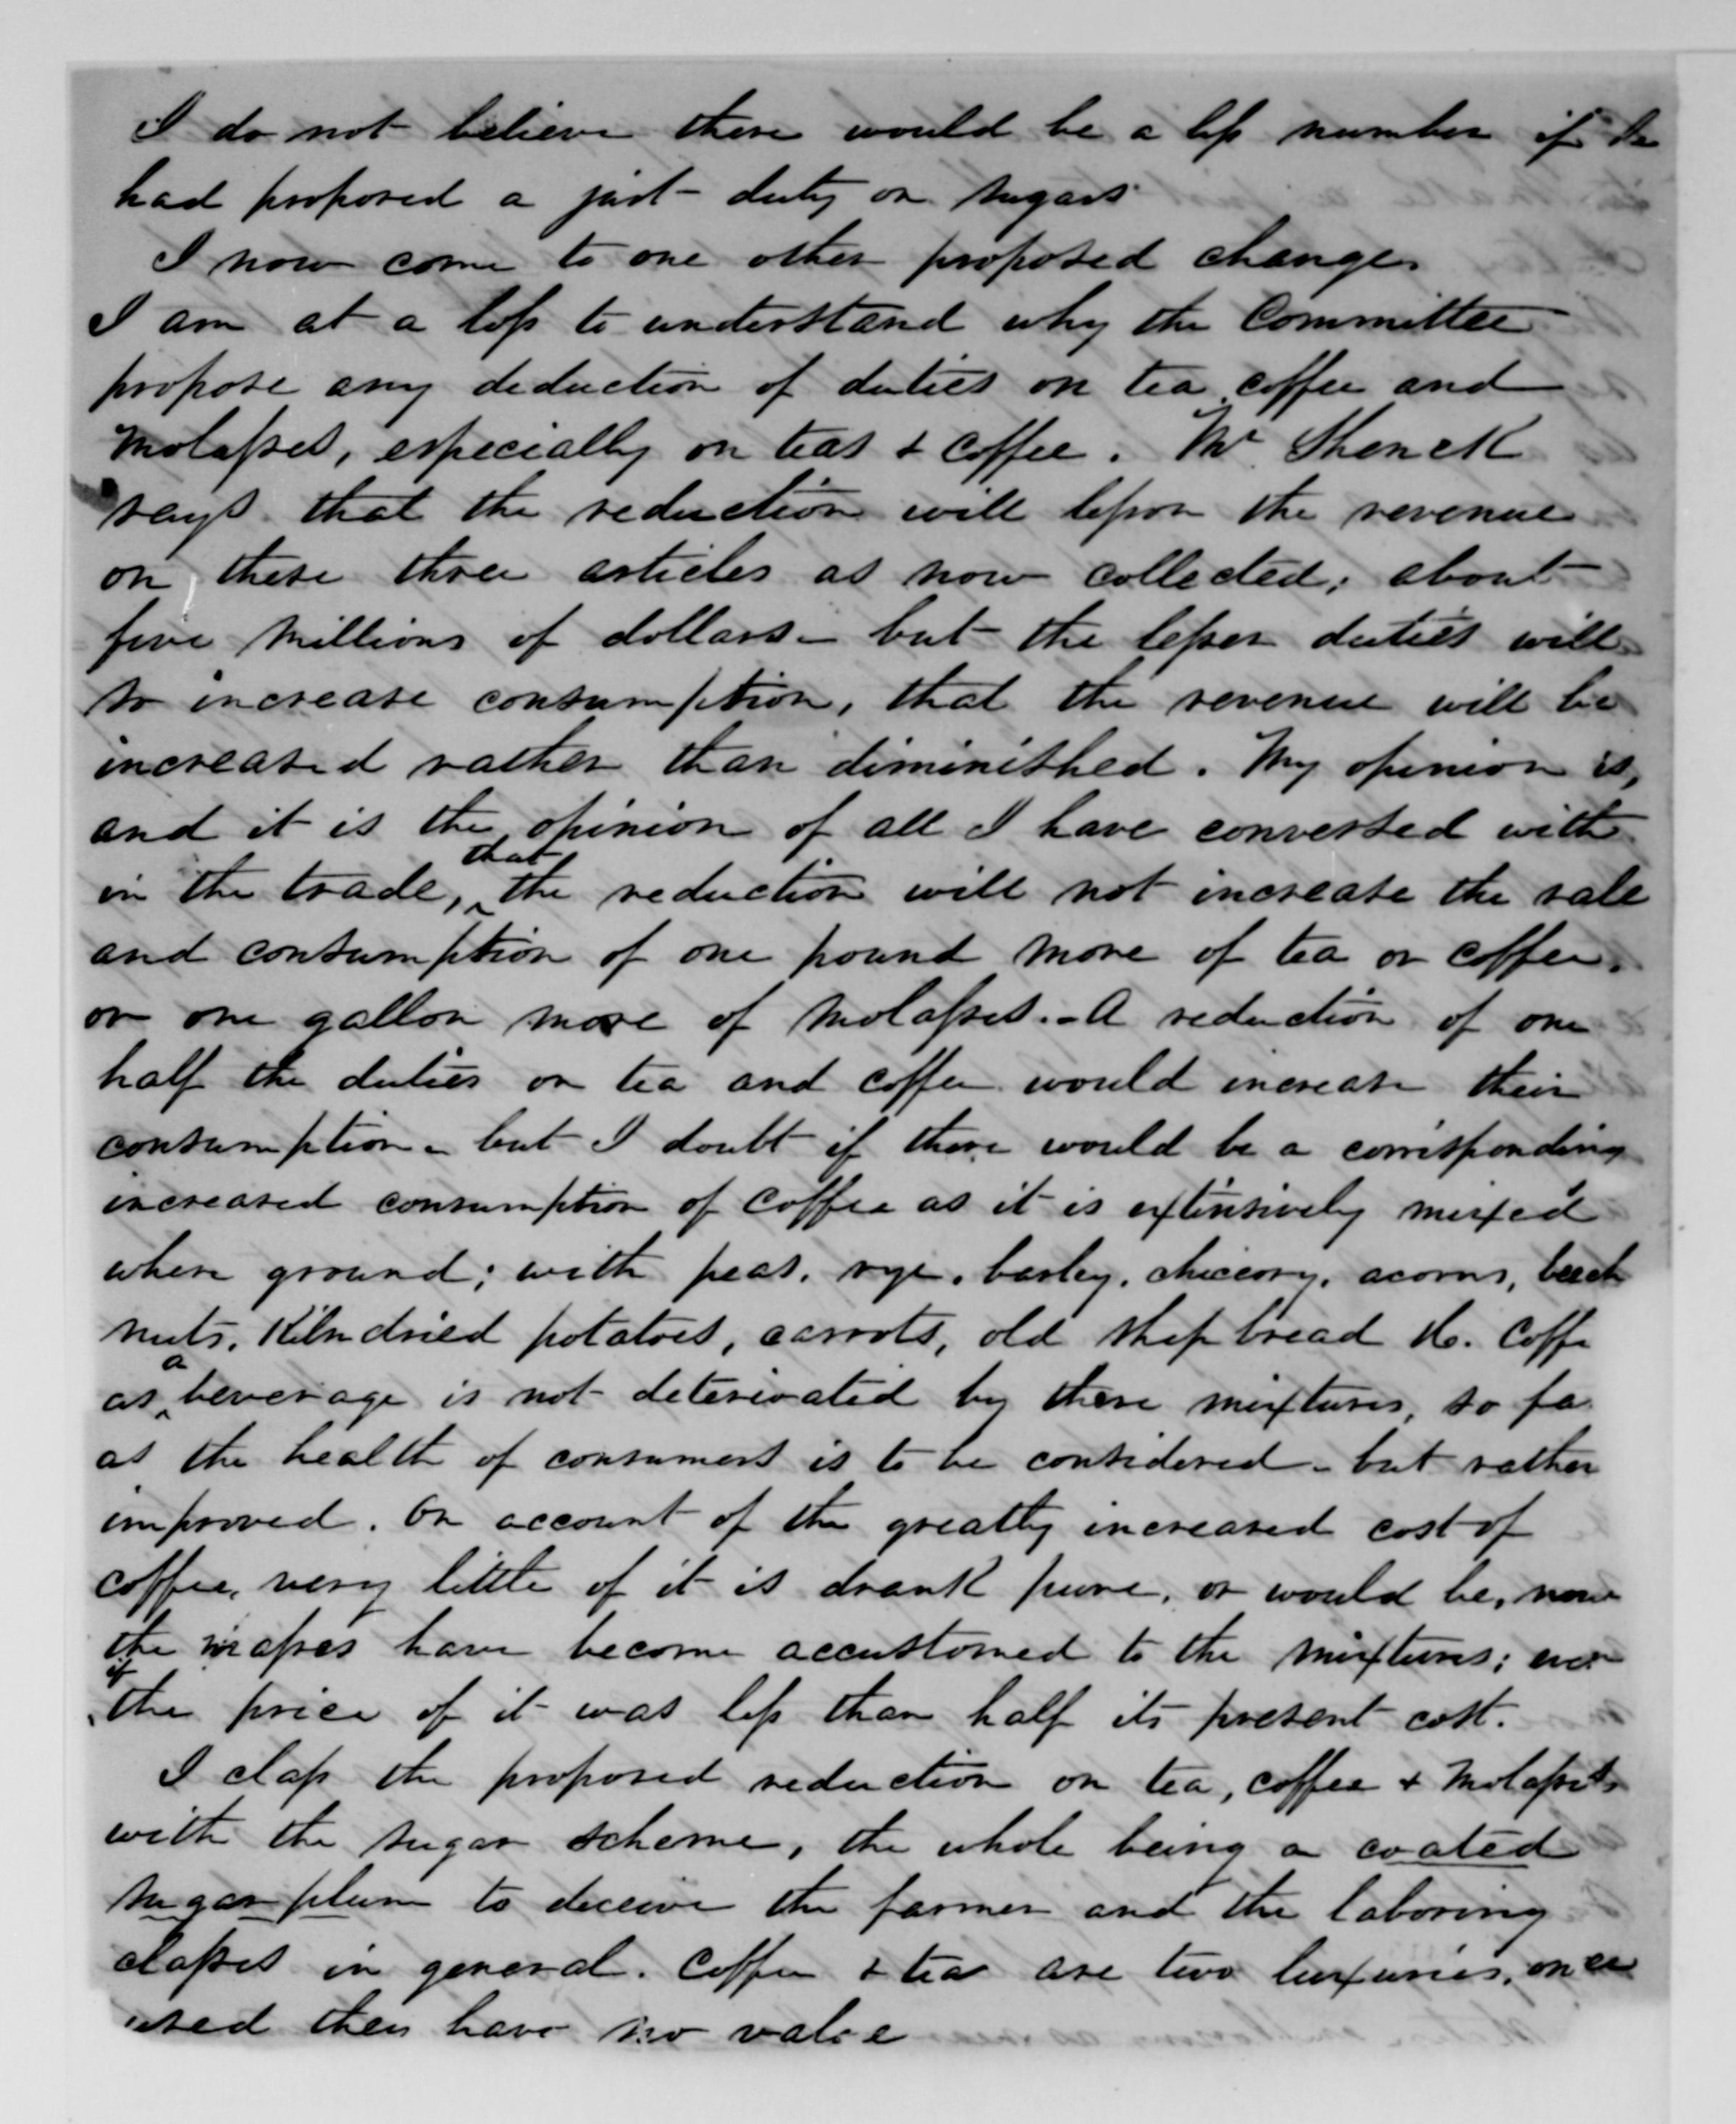 I do not believe there would be a less number if he
had proposed a just duty on sugars
I now come to one other proposed change.
I am at a loss to understand why the Committee
propose any deduction of duties on tea coffee and
Molasses, especially on teas & coffee. Mr Shenck
says that the reduction will lesson the revenue
on these three articles as now collected; about
five Millions of dollars - but the lesser duties will
so increase consumption, that the revenue will be
increased rather than diminished. My opinion is,
and it is the opinion of all I have conversed with
in the trade, that the reduction will not increase the sale
and consumption of one pound more of tea or coffee.
or one gallon more of Molasses. - A reduction of one
half the duties on tea and coffee would increase their
consumption - but I doubt if there would be a corrisponding
increased consumption of Coffee as it is extinsively mixed
when ground; with peas, rye, barley, chiccory, acorns, beech
nuts, Kiln dried potatoes, carrots, old ship bread &c. Coffe
as a beverage is not deteriorated by these mixtures, so fa
as the health of consumers is to be considered - but rather
improved. On account of the greatly increased cost of
coffee, very little of it is drank pure, or would be, now
the masses have become accustomed to the mixtures; even
if the price of it was less than half its present cost.
I class the proposed reduction on tea, coffee & Molasses
with the sugar scheme, the whole being a coated
sugar plum to deceive the farmer and the laboring
classes in general. Coffee & tea are two luxuries, once
used they have no value